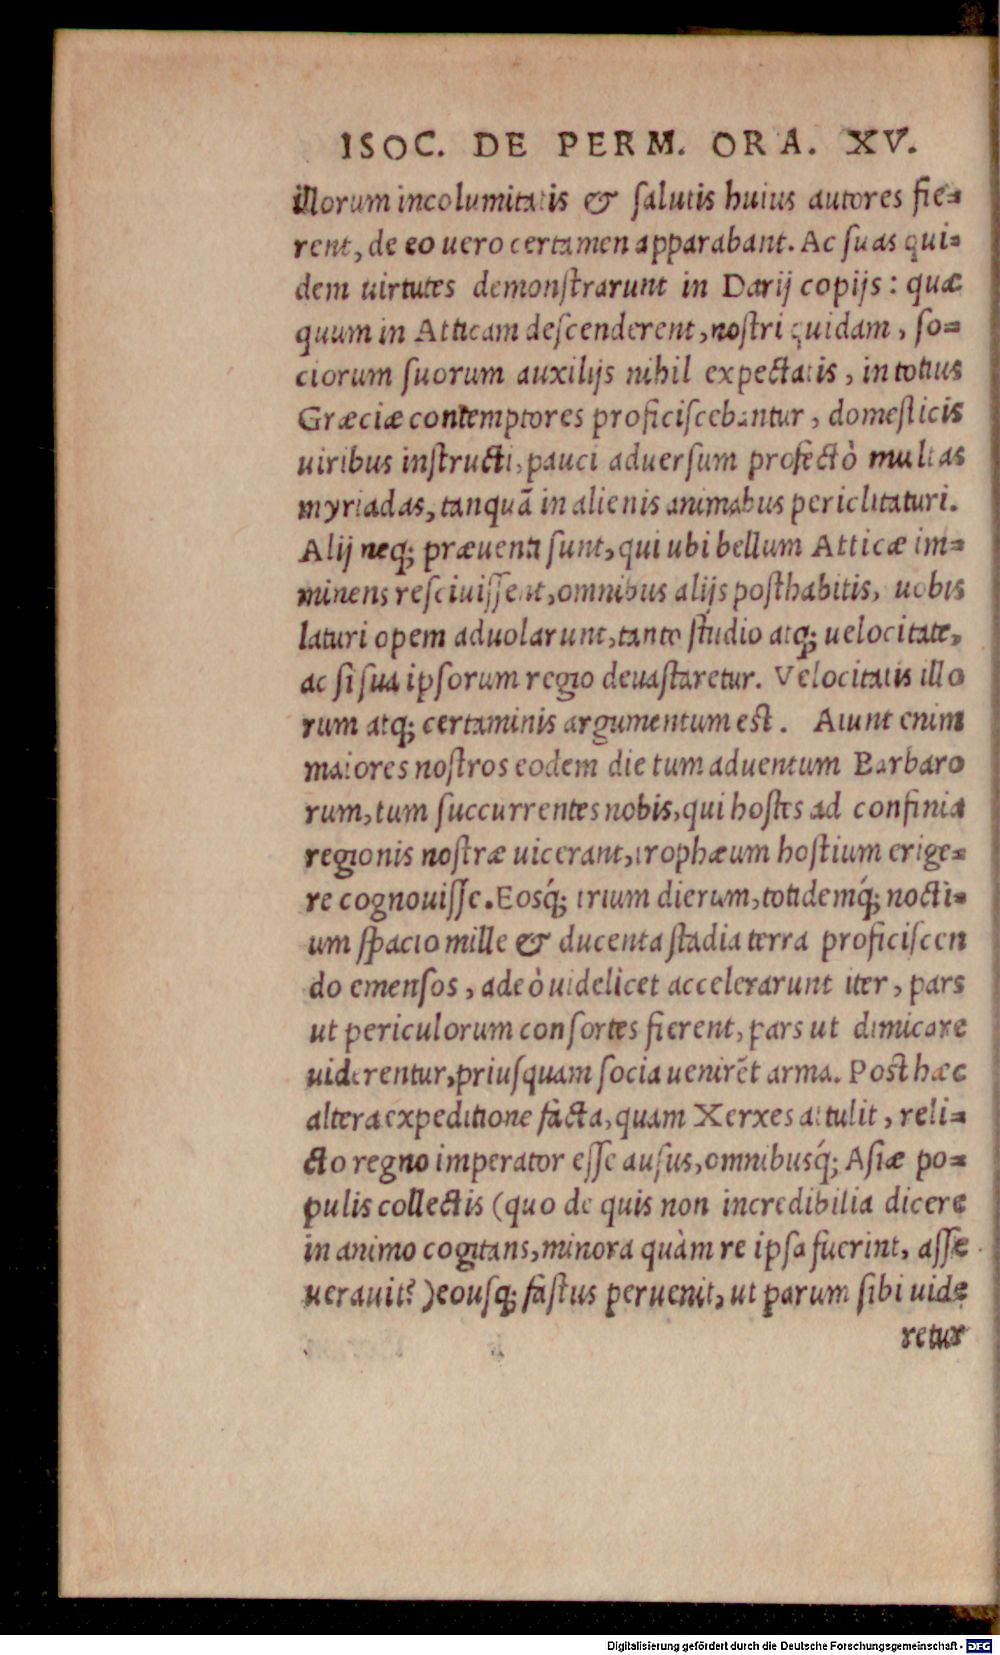 ISOC. DE PERM. ORA. XV.
illorum incolumitatis & ſalutis huius autores fie=
rent, de eo uero certamen apparabant. Ac ſuas qui=
dem uirtutes demonſtrarunt in Darij copijs: quæ
quum in Atticam deſcenderent, noſtri quidam, ſo=
ciorum ſuorum auxilijs nihil expectatis, in totius
Græciæ contemptores proficiſcebantur, domeſticis
uiribus inſtructi, pauci aduerſum profectò multas
myriadas, tanquā in alienis animabus periclitaturi.
Alij neq; præuenti ſunt, qui ubi bellum Atticæ im=
minens reſciuiſſent, omnibus alijs poſthabitis, uobis
laturi opem aduolarunt, tanto ſtudio atq; uelocitate,
ac ſi ſua ipſorum regio deuaſtaretur. Velocitatis illo
rum atq; certaminis argumentum est. Aiunt enim
maiores noſtros eodem die tum aduentum Barbaro
rum, tum ſuccurrentes nobis, qui hoſtes ad confinia
regionis noſtræ uicerant, trophæum hoſtium erige=
re cognouiſſe. Eosq́; trium dierum, totidemq́; nocti=
um ſpacio mille & ducenta ſtadia terra proficiſcen
do emenſos, adeò uidelicet accelerarunt iter, pars
ut periculorum conſortes fierent, pars ut dimicare
uiderentur, priuſquam ſocia uenirēt arma. Post hæc
altera expeditione facta, quam Xerxes attulit, reli=
cto regno imperator eſſe auſus, omnibusq́; Aſiæ po=
pulis collectis (quo de quis non incredibilia dicere
in animo cogitans, minora quàm re ipſa fuerint, aſſe
uerauit?) eouſq; faſtus peruenit, ut parum ſibi uide
retur
Digitalisierung gefördert durch die Deutsche Forschungsgemeinschaft - DFG